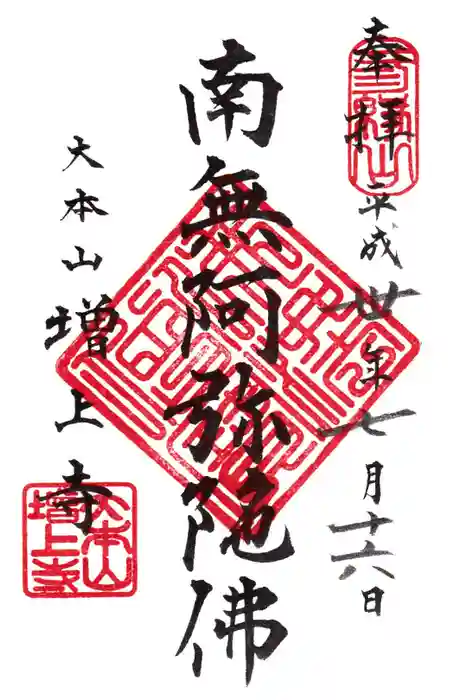 奉拝
平成卅年七月十六日
南無阿弥陀佛
大本山増上寺
大本山
増上寺